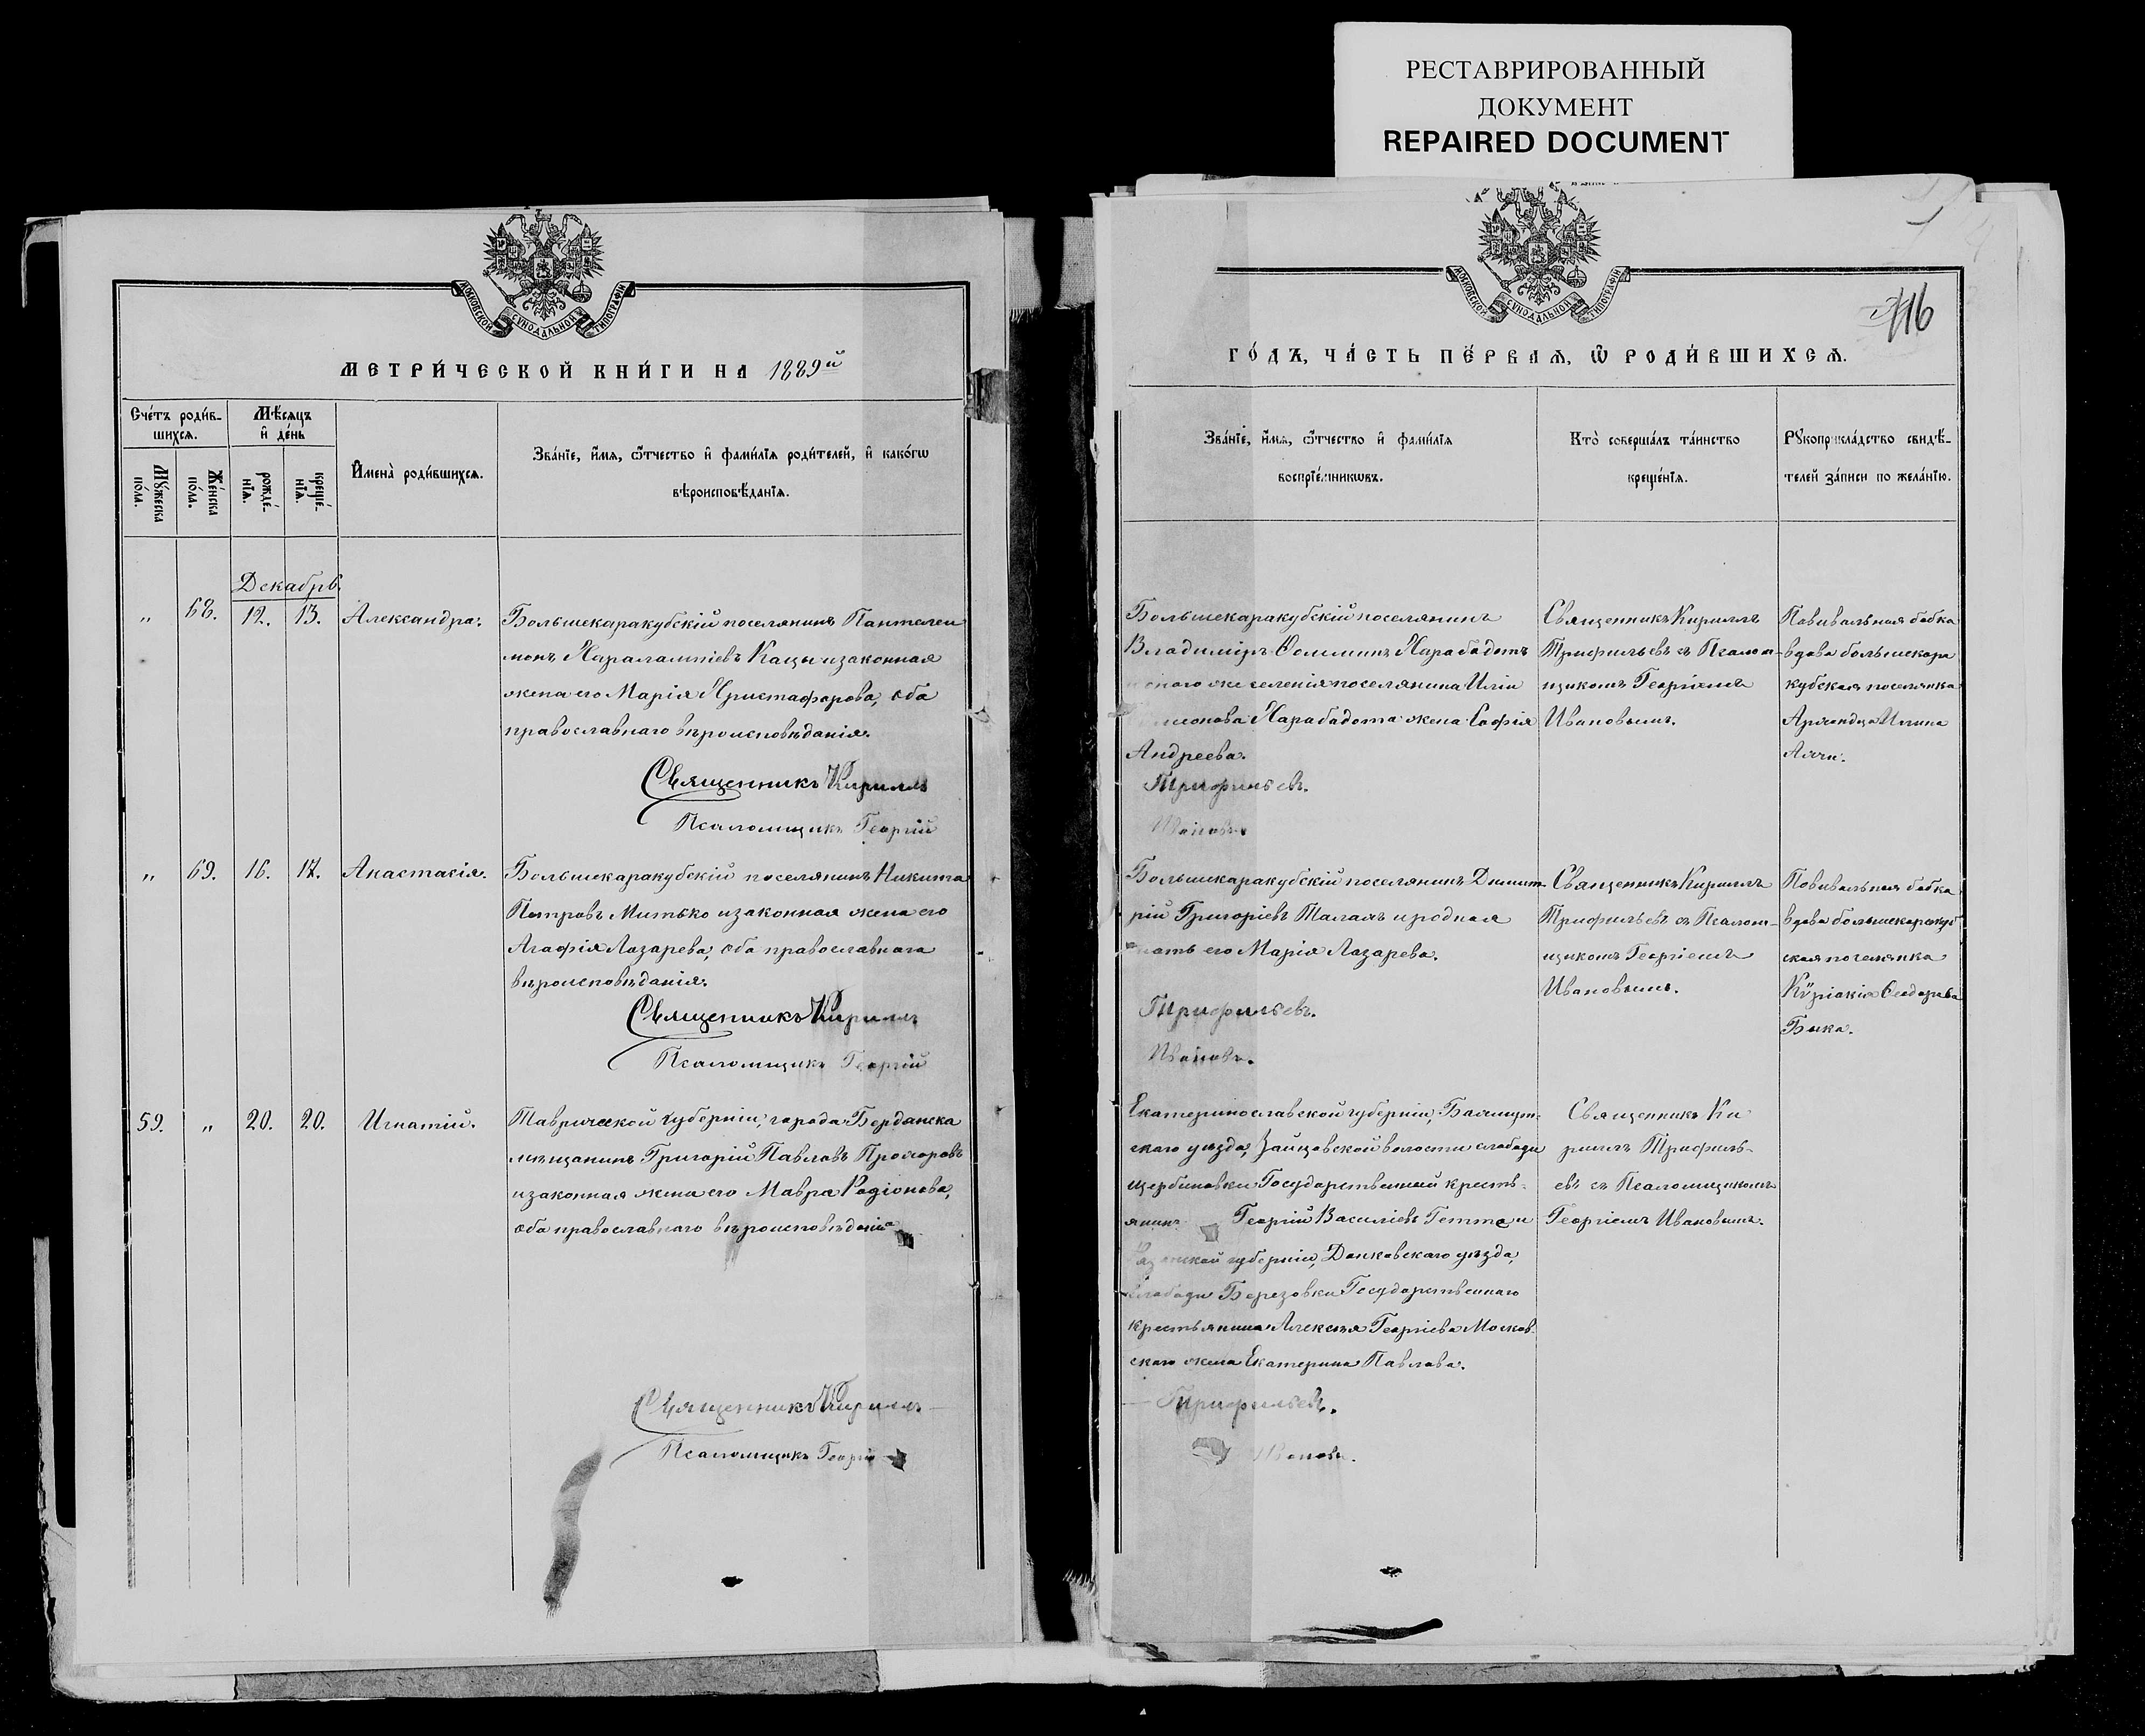 РЕСТАВРИРОВАННЫЙ
ДОКУМЕНТ
REPAIRED DOCUMENT
МОСКОВСКОЙ СѴНОДАЛЬНОЙ ТИПОГРАФІИ
МЕТРИ́ЧЕСКОЙ КНИ́ГИ НА 1889й
Сче́тъ роди́в-
шихсѧ.
Мѣ́сѧцъ
и҆ де́нь
Мꙋ́жеска
по́ла.
Же́нска
по́ла.
рожде́-
нїѧ.
креще́-
нїѧ.
И҆мена̀ роди́вшихсѧ.
Зва́нїе, и҆́мѧ, ѻ҆́тчество и҆ фами́лїѧ роди́телей, и҆ како́гѡ
вѣроисповѣ́данїѧ.
Декабрь.
„ 68. 12. 13. Александра.
Большекаракубскій поселянинъ Пантелеи
монъ Харалампіевъ Кацы и законная
жена его Марія Христафорова, оба
православнаго вѣроисповѣданія.
Священникъ Кириллъ
Псаломщикъ Георгій
„ 69. 16. 17. Анастасія.
Большекаракубскій поселянинъ Никита
Петровъ Митько и законная жена его
Агафія Лазарева, оба православнаго
вѣроисповѣданія.
Священникъ Кириллъ
Псаломщикъ Георгій
59. „ 20. 20. Игнатій.
Таврической губерніи, города Бердянска
мѣщанинъ Григорій Павловъ Прохоровъ
и законная жена его Мавра Родіонова,
оба православнаго вѣроисповѣданія
Священникъ Кириллъ
Псаломщикъ Георгій
МОСКОВСКОЙ СѴНОДАЛЬНОЙ ТИПОГРАФІИ
116
ГО́ДЪ, ЧА́СТЬ ПЕ́РВАѦ, Ѽ РОДИ́ВШИХСѦ.
Зва́нїе, и҆́мѧ, ѻ҆́тчество и҆ фами́лїѧ
воспрїе́мникѡвъ.
Кто̀ соверша́лъ та́инство
креще́нїѧ.
Рꙋкоприкла́дство свидѣ́-
телей за́писи по жела́нїю.
Большекаракубскій поселянинъ
Владиміръ Ѳоминъ Харабадотъ
того же селенія поселянина Иліи
Харабадота жена Софія
Андреева.
Трифильевъ.
Ивановъ.
Священникъ Кириллъ
Трифильевъ съ Псалом-
щикомъ Георгіемъ
Ивановымъ.
Повивальная бабка
вдова большекара
кубская поселянка
Ильина
Большекаракубскій поселянинъ Димит-
рій Григоріевъ Талахъ и родная
мать его Марія Лазарева.
Трифильевъ.
Ивановъ.
Священникъ Кириллъ
Трифильевъ съ Псалом-
щикомъ Георгіемъ
Ивановымъ.
Повивальная бабка
вдова большекаракуб
ская поселянка
Кѵріакія Ѳеодорова
Быка.
Екатеринославской губерніи, Бахмут-
скаго уѣзда, Зайцовской волости слободи
Щербиновки Государственный кресть-
янинъ Георгій Василіевъ Гетта и
Рязанской губерніи, Данковскаго уѣзда,
слободи Березовки Государственнаго
крестьянина Алексѣя Георгіева Москов-
скаго жена Екатерина Павлова.
Трифильевъ.
Ивановъ.
Священникъ Ки
риллъ Трифиль-
евъ съ Псаломщикомъ
Георгіемъ Ивановымъ.